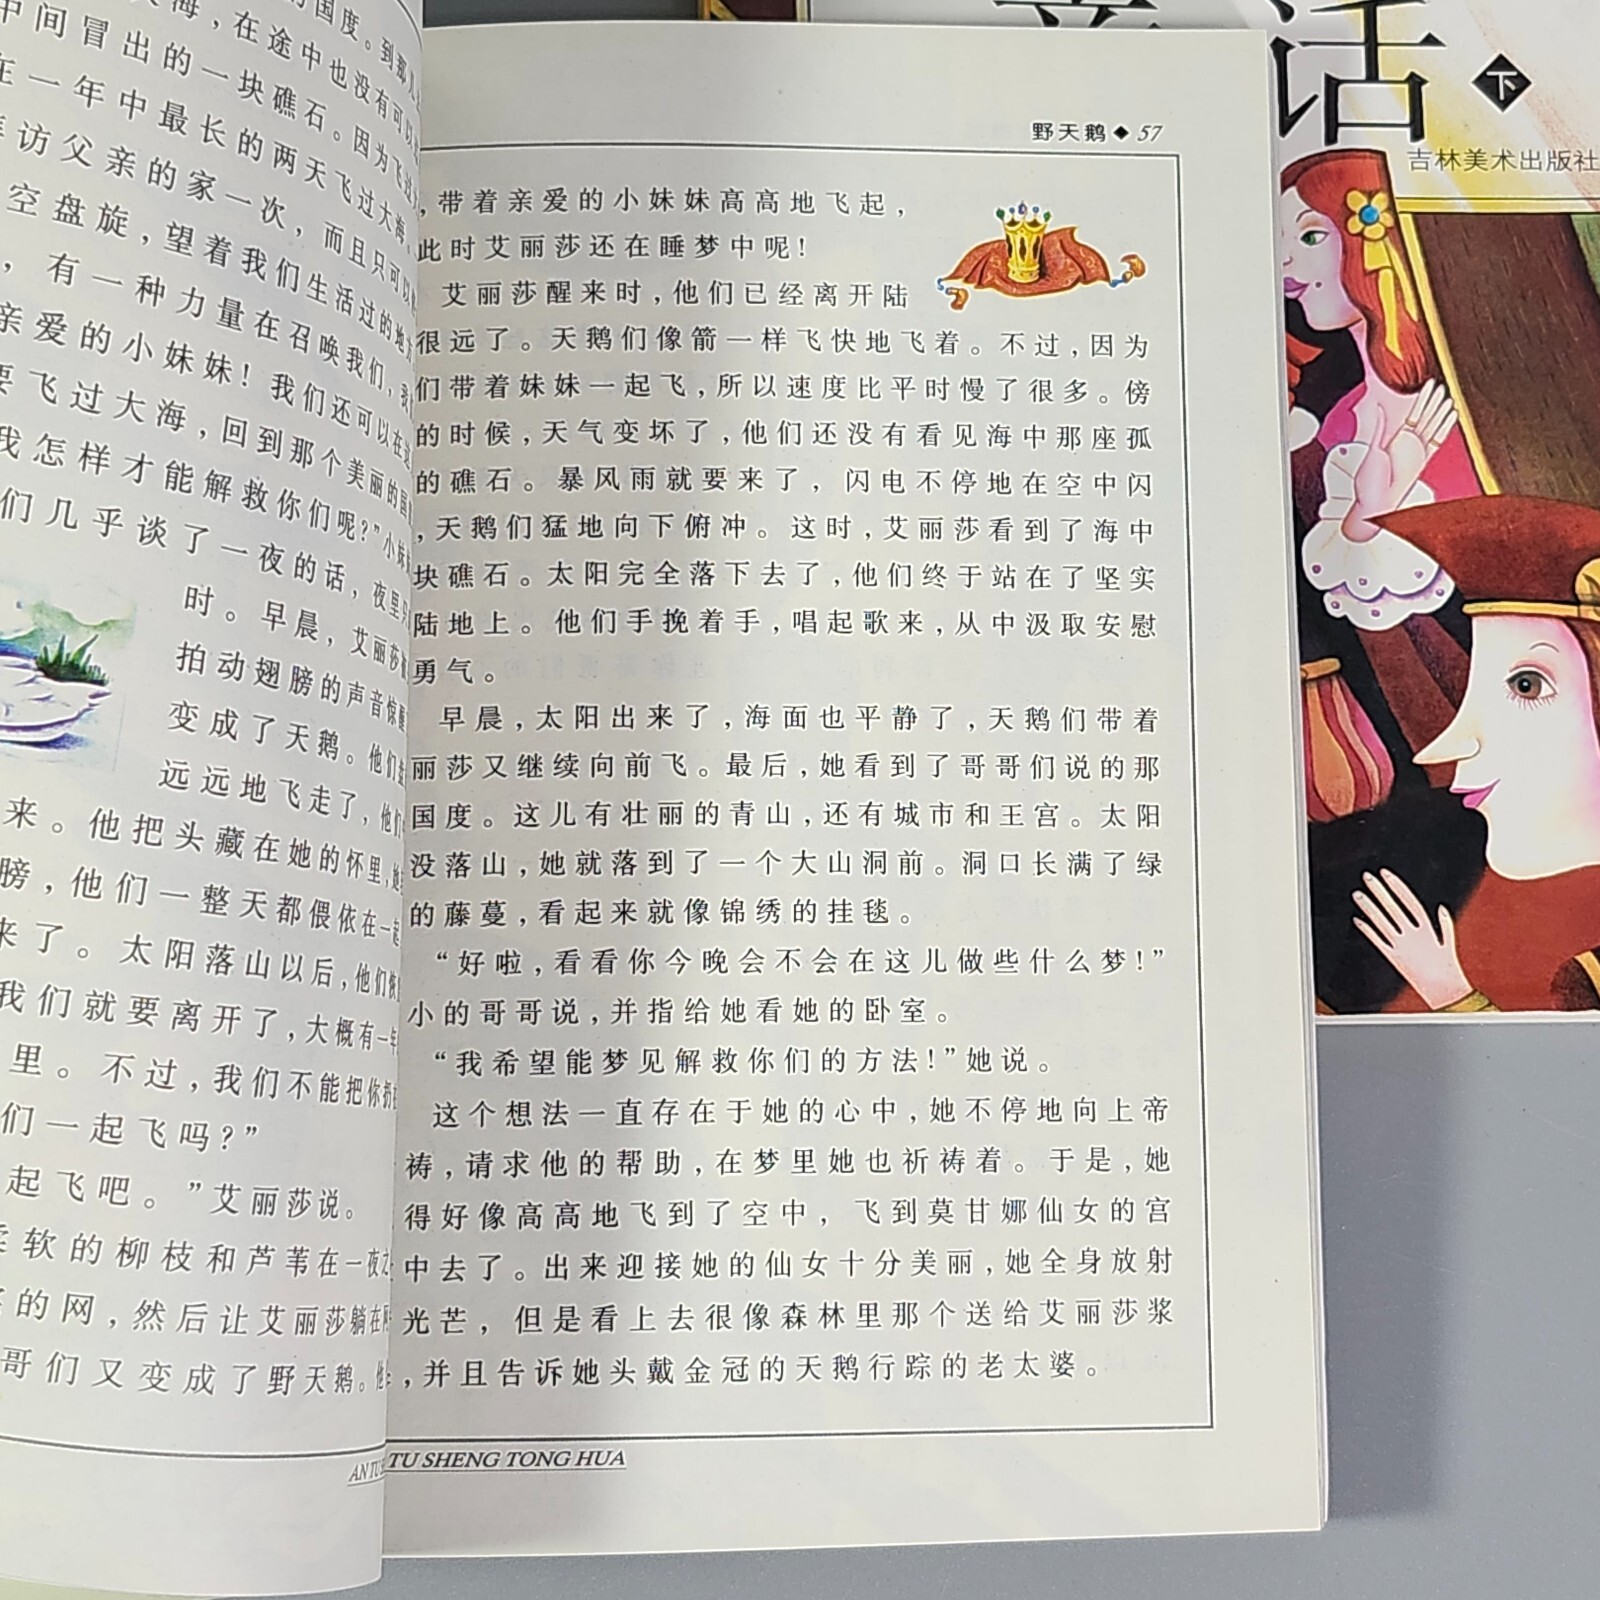 的国度。到那儿
海，在途中也没有可以
中间冒出的一块礁石。因为飞过
在一年中最长的两天飞过大海。
访父亲的家一次，而且只可以
空盘旋，望着我们生活过的地
，有一种力量在召唤我们，我
亲爱的小妹妹！我们还可以在这
要飞过大海，回到那个美丽的国
我怎样才能解救你们呢？”小妹
们几乎谈了一夜的话，夜里只
时。早晨，艾丽莎
拍动翅膀的声音惊醒
变成了天鹅。他们
远远地飞走了，他们
来。他把头藏在她的怀里，她
膀，他们一整天都偎依在一起
来了。太阳落山以后，他们恢
我们就要离开了，大概有一年
里。不过，我们不能把你扔
们一起飞吗？”
起飞吧。”艾丽莎说。
柔软的柳枝和芦苇在一夜之
的网，然后让艾丽莎躺在网
哥们又变成了野天鹅。他
AN TU
野天鹅◆57
，带着亲爱的小妹妹高高地飞起，
此时艾丽莎还在睡梦中呢！
艾丽莎醒来时，他们已经离开陆
很远了。天鹅们像箭一样飞快地飞着。不过，因为
们带着妹妹一起飞，所以速度比平时慢了很多。傍
的时候，天气变坏了，他们还没有看见海中那座孤
的礁石。暴风雨就要来了，闪电不停地在空中闪
，天鹅们猛地向下俯冲。这时，艾丽莎看到了海中
块礁石。太阳完全落下去了，他们终于站在了坚实
陆地上。他们手挽着手，唱起歌来，从中汲取安慰
勇气。
早晨，太阳出来了，海面也平静了，天鹅们带着
丽莎又继续向前飞。最后，她看到了哥哥们说的那
国度。这儿有壮丽的青山，还有城市和王宫。太阳
没落山，她就落到了一个大山洞前。洞口长满了绿
的藤蔓，看起来就像锦绣的挂毯。
“好啦，看看你今晚会不会在这儿做些什么梦！”
小的哥哥说，并指给她看她的卧室。
“我希望能梦见解救你们的方法！”她说。
这个想法一直存在于她的心中，她不停地向上帝
祷，请求他的帮助，在梦里她也祈祷着。于是，她
得好像高高地飞到了空中，飞到莫甘娜仙女的宫
中去了。出来迎接她的仙女十分美丽，她全身放射
光芒，但是看上去很像森林里那个送给艾丽莎浆
，并且告诉她头戴金冠的天鹅行踪的老太婆。
TU SHENG TONG HUA
话 下
吉林美术出版社